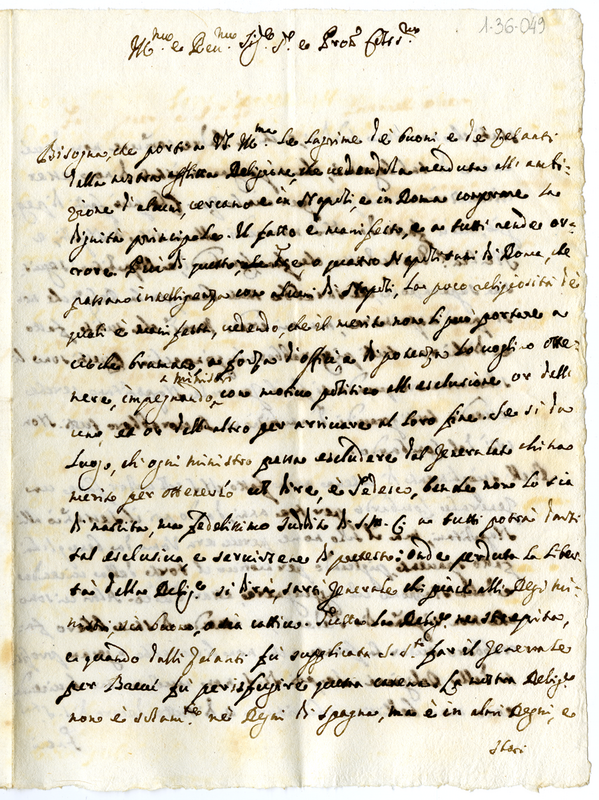 1-36-049
Ill.mo e Rev.mo Sig.re S.r e Pron. Coll.mo
Bisogna, che porti a V.S. Ill.ma le lagrime de' buoni e de Zelanti
della nostra afflitta Religione, che vedendola venduta all'ambi-
zione d'alcuni, cercano e in Napoli, e in Roma comprare la
dignità principale. Il fatto è manifesto, e a tutti rende or-
rore. Più di questo che tre o quattro Napolitani di Roma, che
passano intelligenza con alcuni di Napoli, la poco religiosità de
quali è manifesta, vedendo che il merito non li può portare a
ciò che bramano a forza d'offizi, e di potenza lo vogliono otte-
nere, impegnando i Ministri con motivo politico all'esclusione or dell'
uno, ed or dell'altro per arrivare al loro fine. Se si da
luogo, ch'ogni ministro possa escludere dal Generalato chi ha
merito per ottenerlo col dire, è Tedesco, benche non lo sia
di nascita, ma fedelissimo suddito di S.M. C. a tutti potrà darsi
tal esclusiva e servirsene di pretesto; onde perduta la liber-
tà della Relig.e si dirà, sarà Generale chi piace alli Regi mi-
nistri, sia buono, o sia cattivo. Tutta la Relig.e ne strepita,
e quando dalli Zelanti fù supplicata S. S.tà far il Generale
per Breve fù per isfugire questa catena. La nostra Relig.e
non è solam.te ne Regni di Spagna, ma è in altri Regni, e
Stati